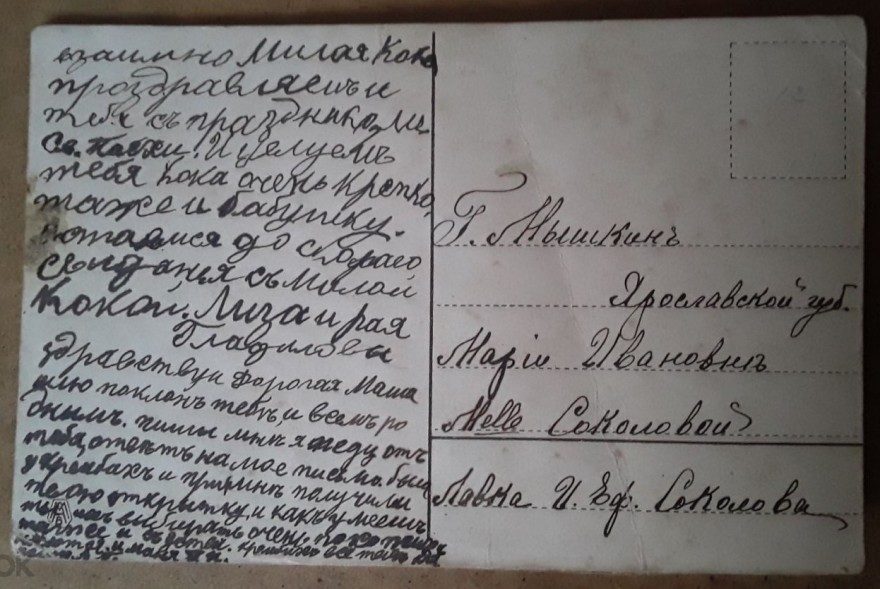 взаимно Милая Кока
проздравляемъ и
тебя съ праздникоми
Св. Пасхи. И целуемъ
тебя Кока очень крепко,
также и бабушку.
астаемся до скораго
свиданья съ милой
Кокой, Лиза и рая
Гладиловы
здравствуи дорогая Маша
шлю поклонъ тебѣ, и всемъ ро
днымъ. пишы мнѣ я жду отъ
тебя, ответъ на мое письмо были
у и получили
твою открытку, и какъ умеешъ
ты выбирать очень
также и
Г. Мышкинъ
Ярославской губ.
Маріи Ивановнѣ
Melle Соколовой
Лавка И. Еф. Соколова
ОК